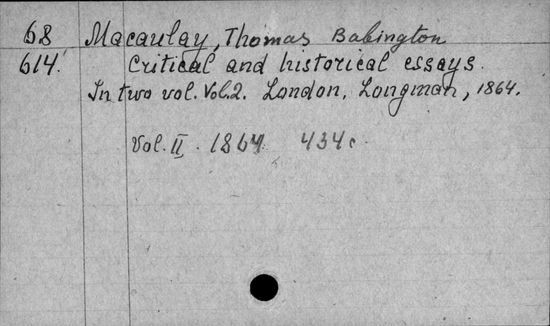 68 Macaulay, Thomas Babington
614. Critical and historical essays.
In two vol. Vol.2. London, Longman, 1864.
Vol. II. 1864 434c.